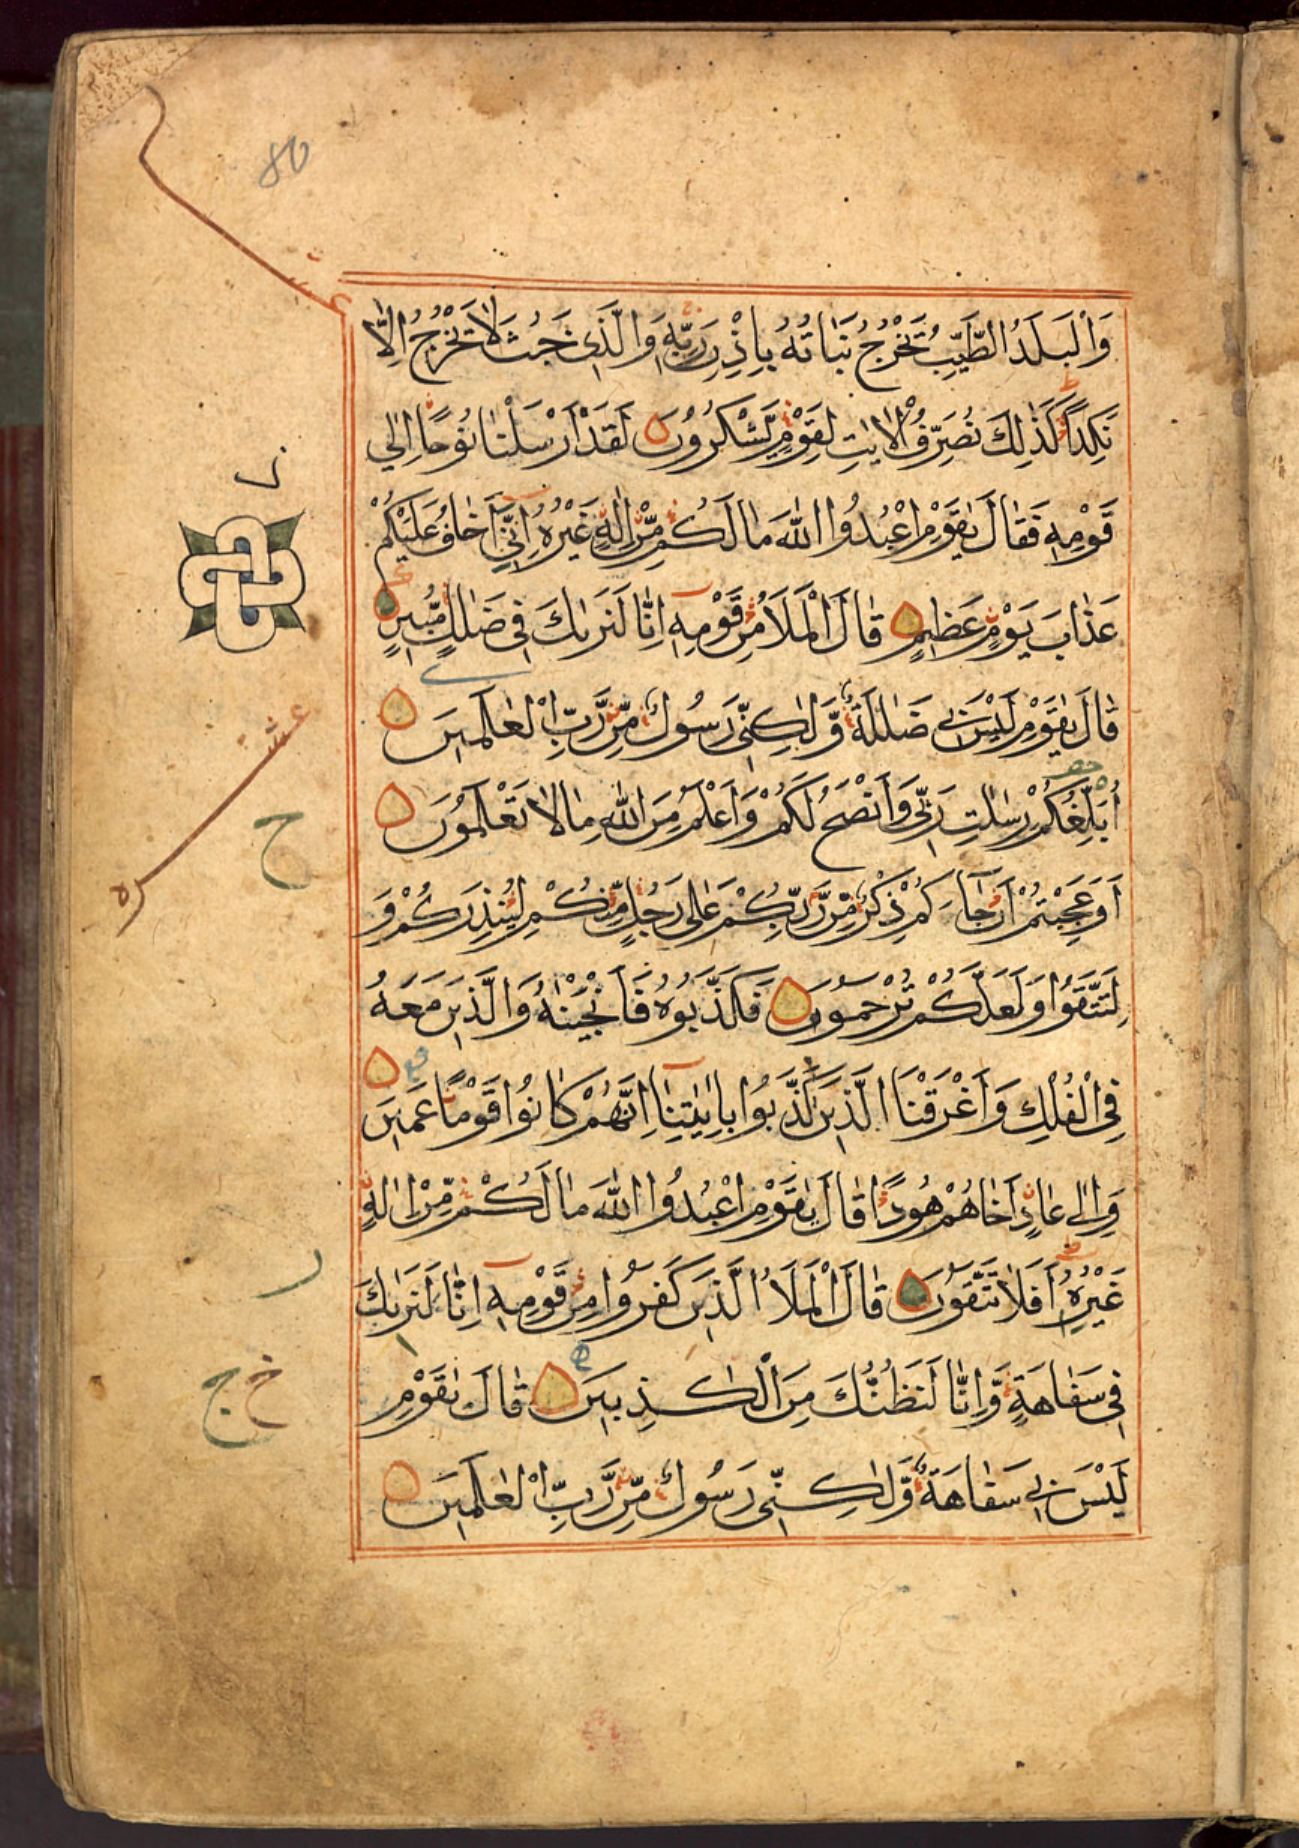 80
وَالْبَلَدُ الطَّيِّبُ يَخْرُجُ نَبَاتُهُ بِإِذْنِ رَبِّهِ وَالَّذِي خَبُثَ لَا يَخْرُجُ إِلَّا
نَكِدًا كَذَٰلِكَ نُصَرِّفُ الْآيَٰتِ لِقَوْمٍ يَّشْكُرُونَ لَقَدْ أَرْسَلْنَا نُوحًا إِلَىٰ
قَوْمِهِ فَقَالَ يَٰقَوْمِ اعْبُدُوا اللَّهَ مَا لَكُم مِّنْ إِلَٰهٍ غَيْرُهُ إِنِّي أَخَافُ عَلَيْكُمْ
عَذَابَ يَوْمٍ عَظِيمٍ قَالَ الْمَلَأُ مِن قَوْمِهِ إِنَّا لَنَرَىٰكَ فِي ضَلَٰلٍ مُّبِينٍ
قَالَ يَٰقَوْمِ لَيْسَ بِي ضَلَٰلَةٌ وَّلَٰكِنِّي رَسُولٌ مِّن رَّبِّ الْعَٰلَمِينَ
أُبَلِّغُكُمْ رِسَٰلَٰتِ رَبِّي وَأَنْصَحُ لَكُمْ وَأَعْلَمُ مِنَ اللَّهِ مَا لَا تَعْلَمُونَ
أَوَعَجِبْتُمْ أَن جَآءَكُمْ ذِكْرٌ مِّن رَّبِّكُمْ عَلَىٰ رَجُلٍ مِّنكُمْ لِيُنذِرَكُمْ وَ
لِتَتَّقُوا وَلَعَلَّكُمْ تُرْحَمُونَ فَكَذَّبُوهُ فَأَنْجَيْنَٰهُ وَالَّذِينَ مَعَهُ
فِي الْفُلْكِ وَأَغْرَقْنَا الَّذِينَ كَذَّبُوا بِآيَٰتِنَا إِنَّهُمْ كَانُوا قَوْمًا عَمِينَ
وَإِلَىٰ عَادٍ أَخَاهُمْ هُودًا قَالَ يَٰقَوْمِ اعْبُدُوا اللَّهَ مَا لَكُم مِّنْ إِلَٰهٍ
غَيْرُهُ أَفَلَا تَتَّقُونَ قَالَ الْمَلَأُ الَّذِينَ كَفَرُوا مِن قَوْمِهِ إِنَّا لَنَرَىٰكَ
فِي سَفَاهَةٍ وَّإِنَّا لَنَظُنُّكَ مِنَ الْكَٰذِبِينَ قَالَ يَٰقَوْمِ
لَيْسَ بِي سَفَاهَةٌ وَّلَٰكِنِّي رَسُولٌ مِّن رَّبِّ الْعَٰلَمِينَ
عشره
ح
ر
خ ج